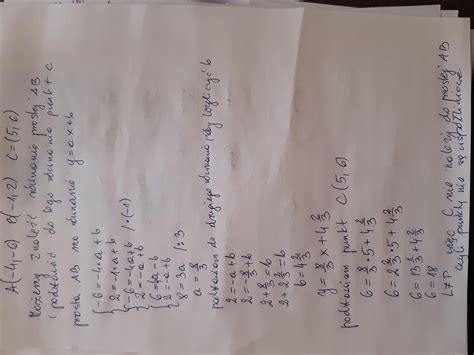 A(-4,-6) B(-1,2) C=(5,6)
Możemy znaleźć równanie prostej AB
i podstawić do tego równania punkt C
prosta AB ma równanie y=ax+b
{-6=-4a+b
{2=-1·a+b /·(-1)
{-6=-4a+b
{-2=a-b
{6=4a-b
{2=-a+b
8=3a /:3
a=8/3
podstawiam do drugiego równania aby wyliczyć b
2=-a+b
2=-8/3+b
2+8/3=b
2+2 2/3=b
b=4 2/3
y=8/3x+4 2/3
podstawiam punkt C(5,6)
6=8/3·5+4 2/3
6=2 2/3·5+4 2/3
6=13 1/3+4 2/3
6=18
L≠P
czyli punkty nie są współliniowe